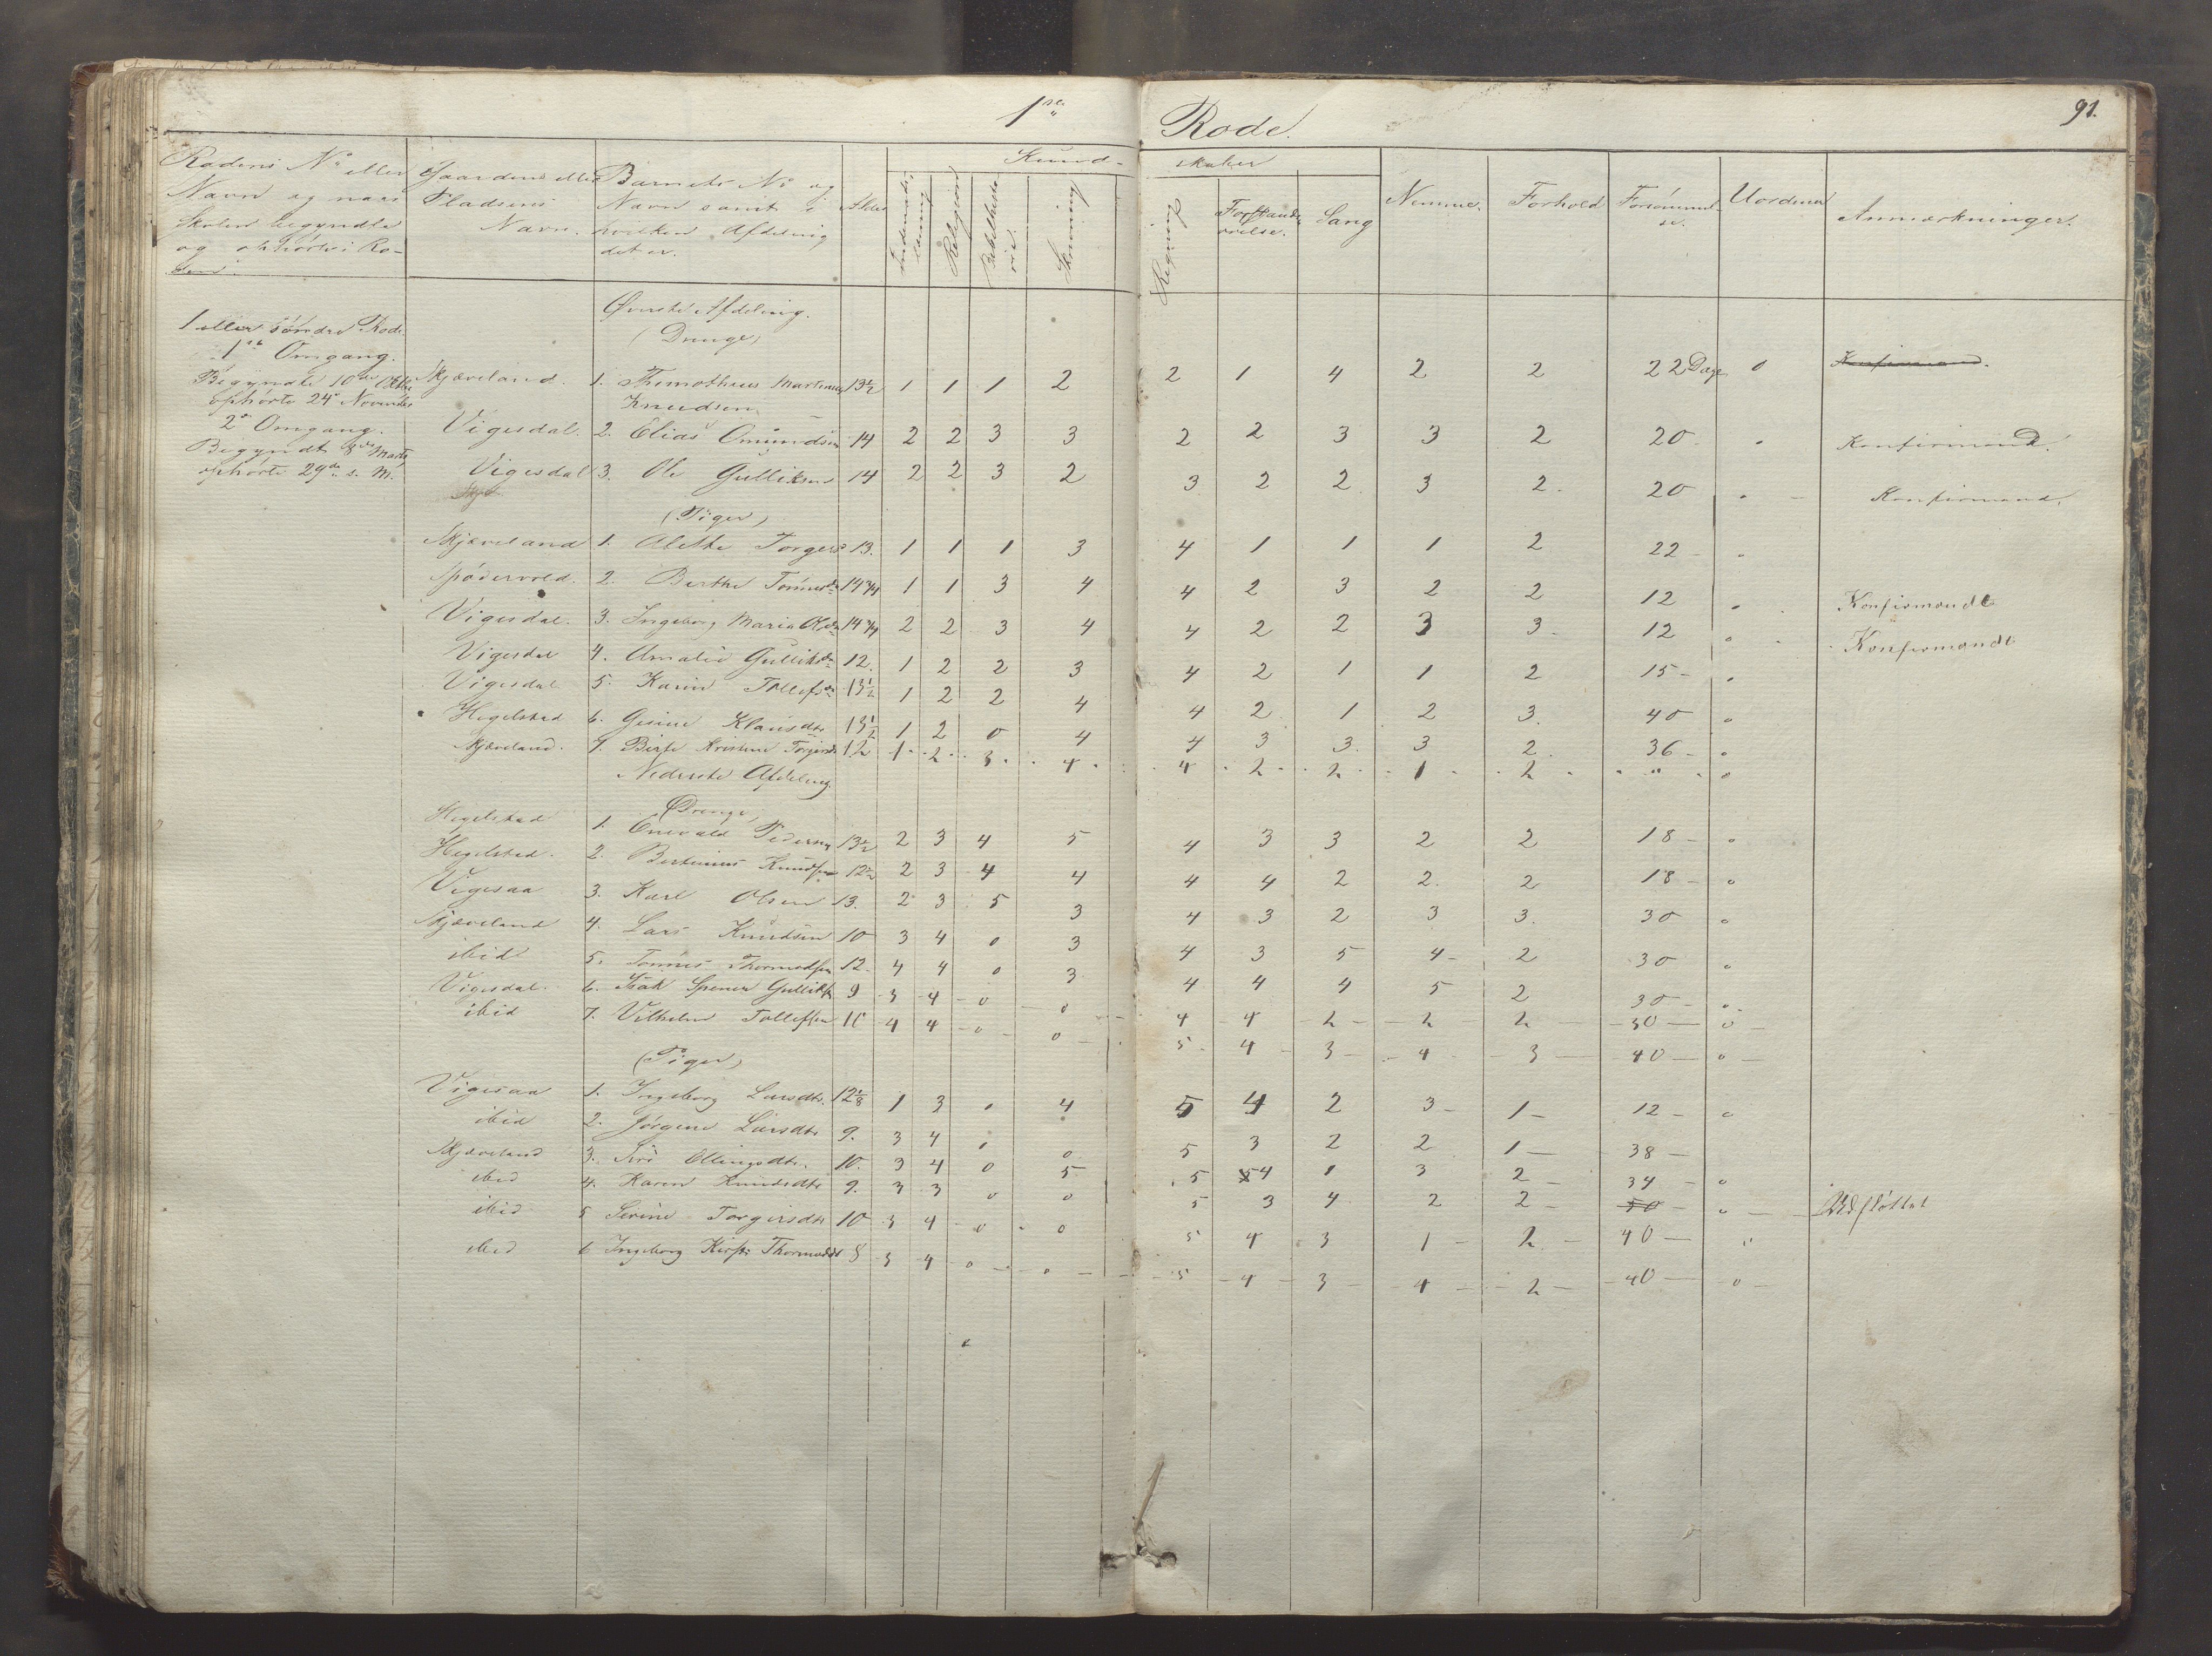 1ste Rode. 91.
Rodens No eller Navn og naar Skolen begyndte og ophørte i Roden. Gaardens eller Pladsens Navn. Barnets No og Navn samt i hvilken Afdeling det er. Alder Kundskaber Religion Bibelhistorie. Skrivning Regning Forstandsøvelse. Sang Nemme. Forhold Forsømmelse. Uordener Anmærkninger.
Øverste Afdeling.
(Drenge)
1 eller søndre Rode
1ste Omgang.
Begyndte 10de Octbr
ophørte 24de November
2den Omgang.
Begyndt 8de Marts
ophørte 29de s. M.
Skjæveland. 1. Thimotheus Martinus Knudsen 13½ 1 1 1 2 2 1 4 2 2 22 Dage 0 Konfirmand.
Vigesdal. 2. Elias Omundsen 14 2 2 3 3 2 2 3 3 2 20 " Konfirmand.
Vigesdal 3. Ole Gulliksen 14 2 2 3 2 3 2 2 3 2. 20 " Konfirmand.
(Piger)
Skjæveland 1. Alethe Torgersd 13. 1 1 1 3 4 1 1 1 2 22 "
Spødervold. 2. Berthe Tønnesdr 14¾ 1 1 3 4 4 2 3 2 2 12 " Konfirmandt
Vigesdal. 3. Ingeborg Maria Olsdr 14¾ 2 2 3 4 4 2 2 3 3. 12 0 Konfirmandt
Vigesdal 4. Amalie Gulliksdr 12. 1 2 2 3 4 2 1 1 2 15 "
Vigesdal 5. Karin Tollefsdr 13½ 1 2 2 4 4 2 1 2 3. 40 0
Hegelstad 6. Gesine Klausdtr 13½ 1 2 0 4 4 3 3. 3 2 36 0
Skjæveland. 7. Birte Kristine Torgersdr 12 1 2 3 4 4 2 2 1 2 " 0
Nederste Afdeling.
(Drenge)
Hegelstad 1. Enevald Pedersen 13½ 2 3 4 5 4 3 3 2 2 18 0
Hegelstad. 2. Bertinius Knudsen 12½ 2 3 4 4 4 4 2 2. 2 18 0
Vigesaa 3. Karl Olsen 13. 2 3 5 3 4 3 2 3 3. 30 0
Skjæveland 4. Lars Knudsen 10 3 4 0 3 4 3 5 4 2 30 0
ibid 5. Tønnes Thormodsen 12 4 4 0 3 4 4 4 5 2 30 0
Vigesdal. 6. Isak Spener Gulliks 9 3 4 0 0 4 4 2 2 2 30 0
ibid 7. Vilhelm Tollefsen 10 4 4 0 0 5 4 3 4 3 40 0
(Piger)
Vigesaa 1. Ingeborg Larsdtr. 12⅛ 1 3 0 4 5 4 2 3 1 12 0
ibid 2. Jørgine Larsdtr 9. 3 4 0 0 5 3 2 2 1 38
Skjæveland 3. Siri Ellingsdtr. 10. 3 4 0 5 5 4 1 3 2 34 0
ibid 4. Karen Knudsdtr 9. 3 3 0 0 5 3 4 2 2 50 0 Udfløttet
ibid 5 Serine Torgersdtr 10 3 4 0 0 5 4 3 1 2 40 "
ibid 6 Ingeborg Kirsti Thormodsdr 8 3 4 0 0 5 4 3 4 2 40 0